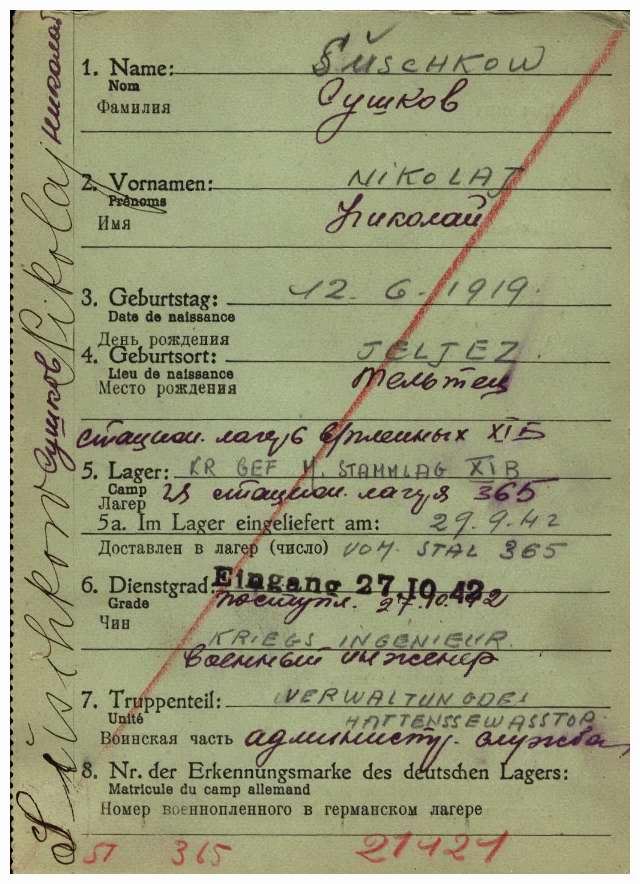 1. Name: SUSCHKOW
Nom
Фамилия Сушков
2. Vornamen: NIKOLAJ
Prénoms
Имя Николай
3. Geburtstag: 12. 6. 1919.
Date de naissance
День рождения
4. Geburtsort: JELJEZ.
Lieu de naissance
Место рождения
стацион. лагерь XI Б
5. Lager: KR GEF M. STAMMLAG XI B
Camp
Лагерь из стацион. лагеря 365
5a. Im Lager eingeliefert am: 29.9.42
Доставлен в лагерь (число) VOM. STAL 365
6. Dienstgrad: Eingang 27.10.42
Grade поступл. 27.10.42
Чин
KRIEGS INGENIEUR.
военный инженер
7. Truppenteil: VERWALTUNG DES
Unité
Воинская часть администр. служба
8. Nr. der Erkennungsmarke des deutschen Lagers:
Matricule du camp allemand
Номер военнопленного в германском лагере
ST 365 21421
Suschkow Nikolaj
Сушков Николай